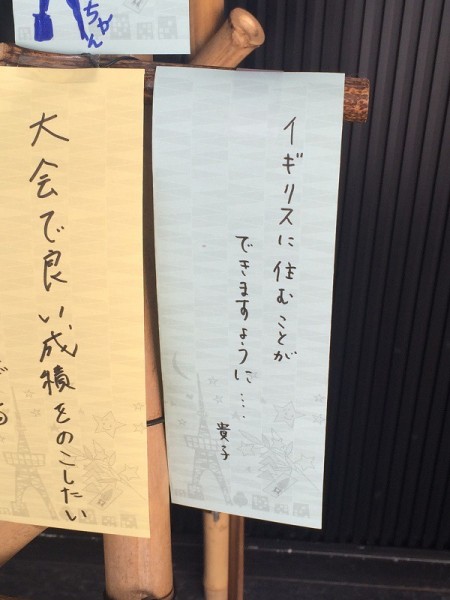 ちゃん
イギリスに住むことが
できますように…
貴子
大会で良い成績をのこしたい